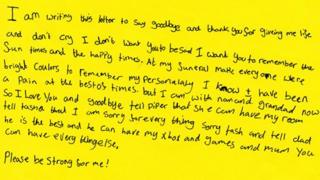 I am writing this letter to say goodbye and thank you for giving me life
and don't cry I don't want you to be sad I want you to remember the
Sun times and the happy times. At my funeral make everyone were
bright Coulors to remember my personalaty I know I have been
a pain at the bestos times. but I am with nan and grandad now
So I Love You and goodbye tell piper that She can have my room
tell tasha that I am sorry for every thing Sorry tash and tell dad
he is the best and he can have my Xbox and games and mum you
Can have everything else.
Please be Strong for me!